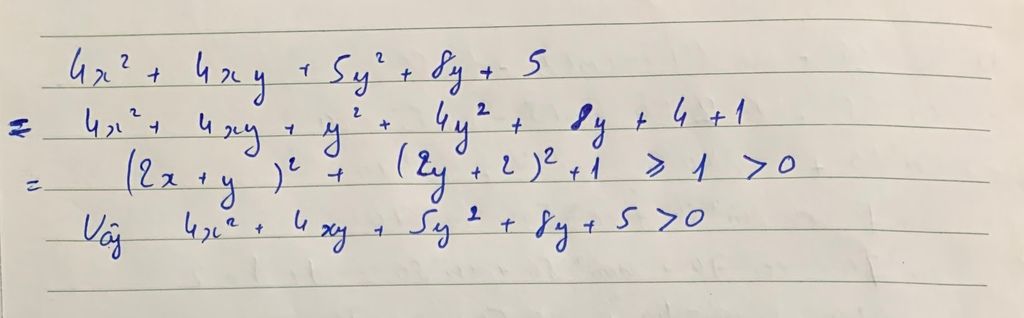 4x² + 4xy + 5y² + 8y + 5
= 4x² + 4xy + y² + 4y² + 8y + 4 + 1
= (2x + y)² + (2y + 2)² + 1 ⩾ 1 > 0
Vậy 4x² + 4xy + 5y² + 8y + 5 > 0